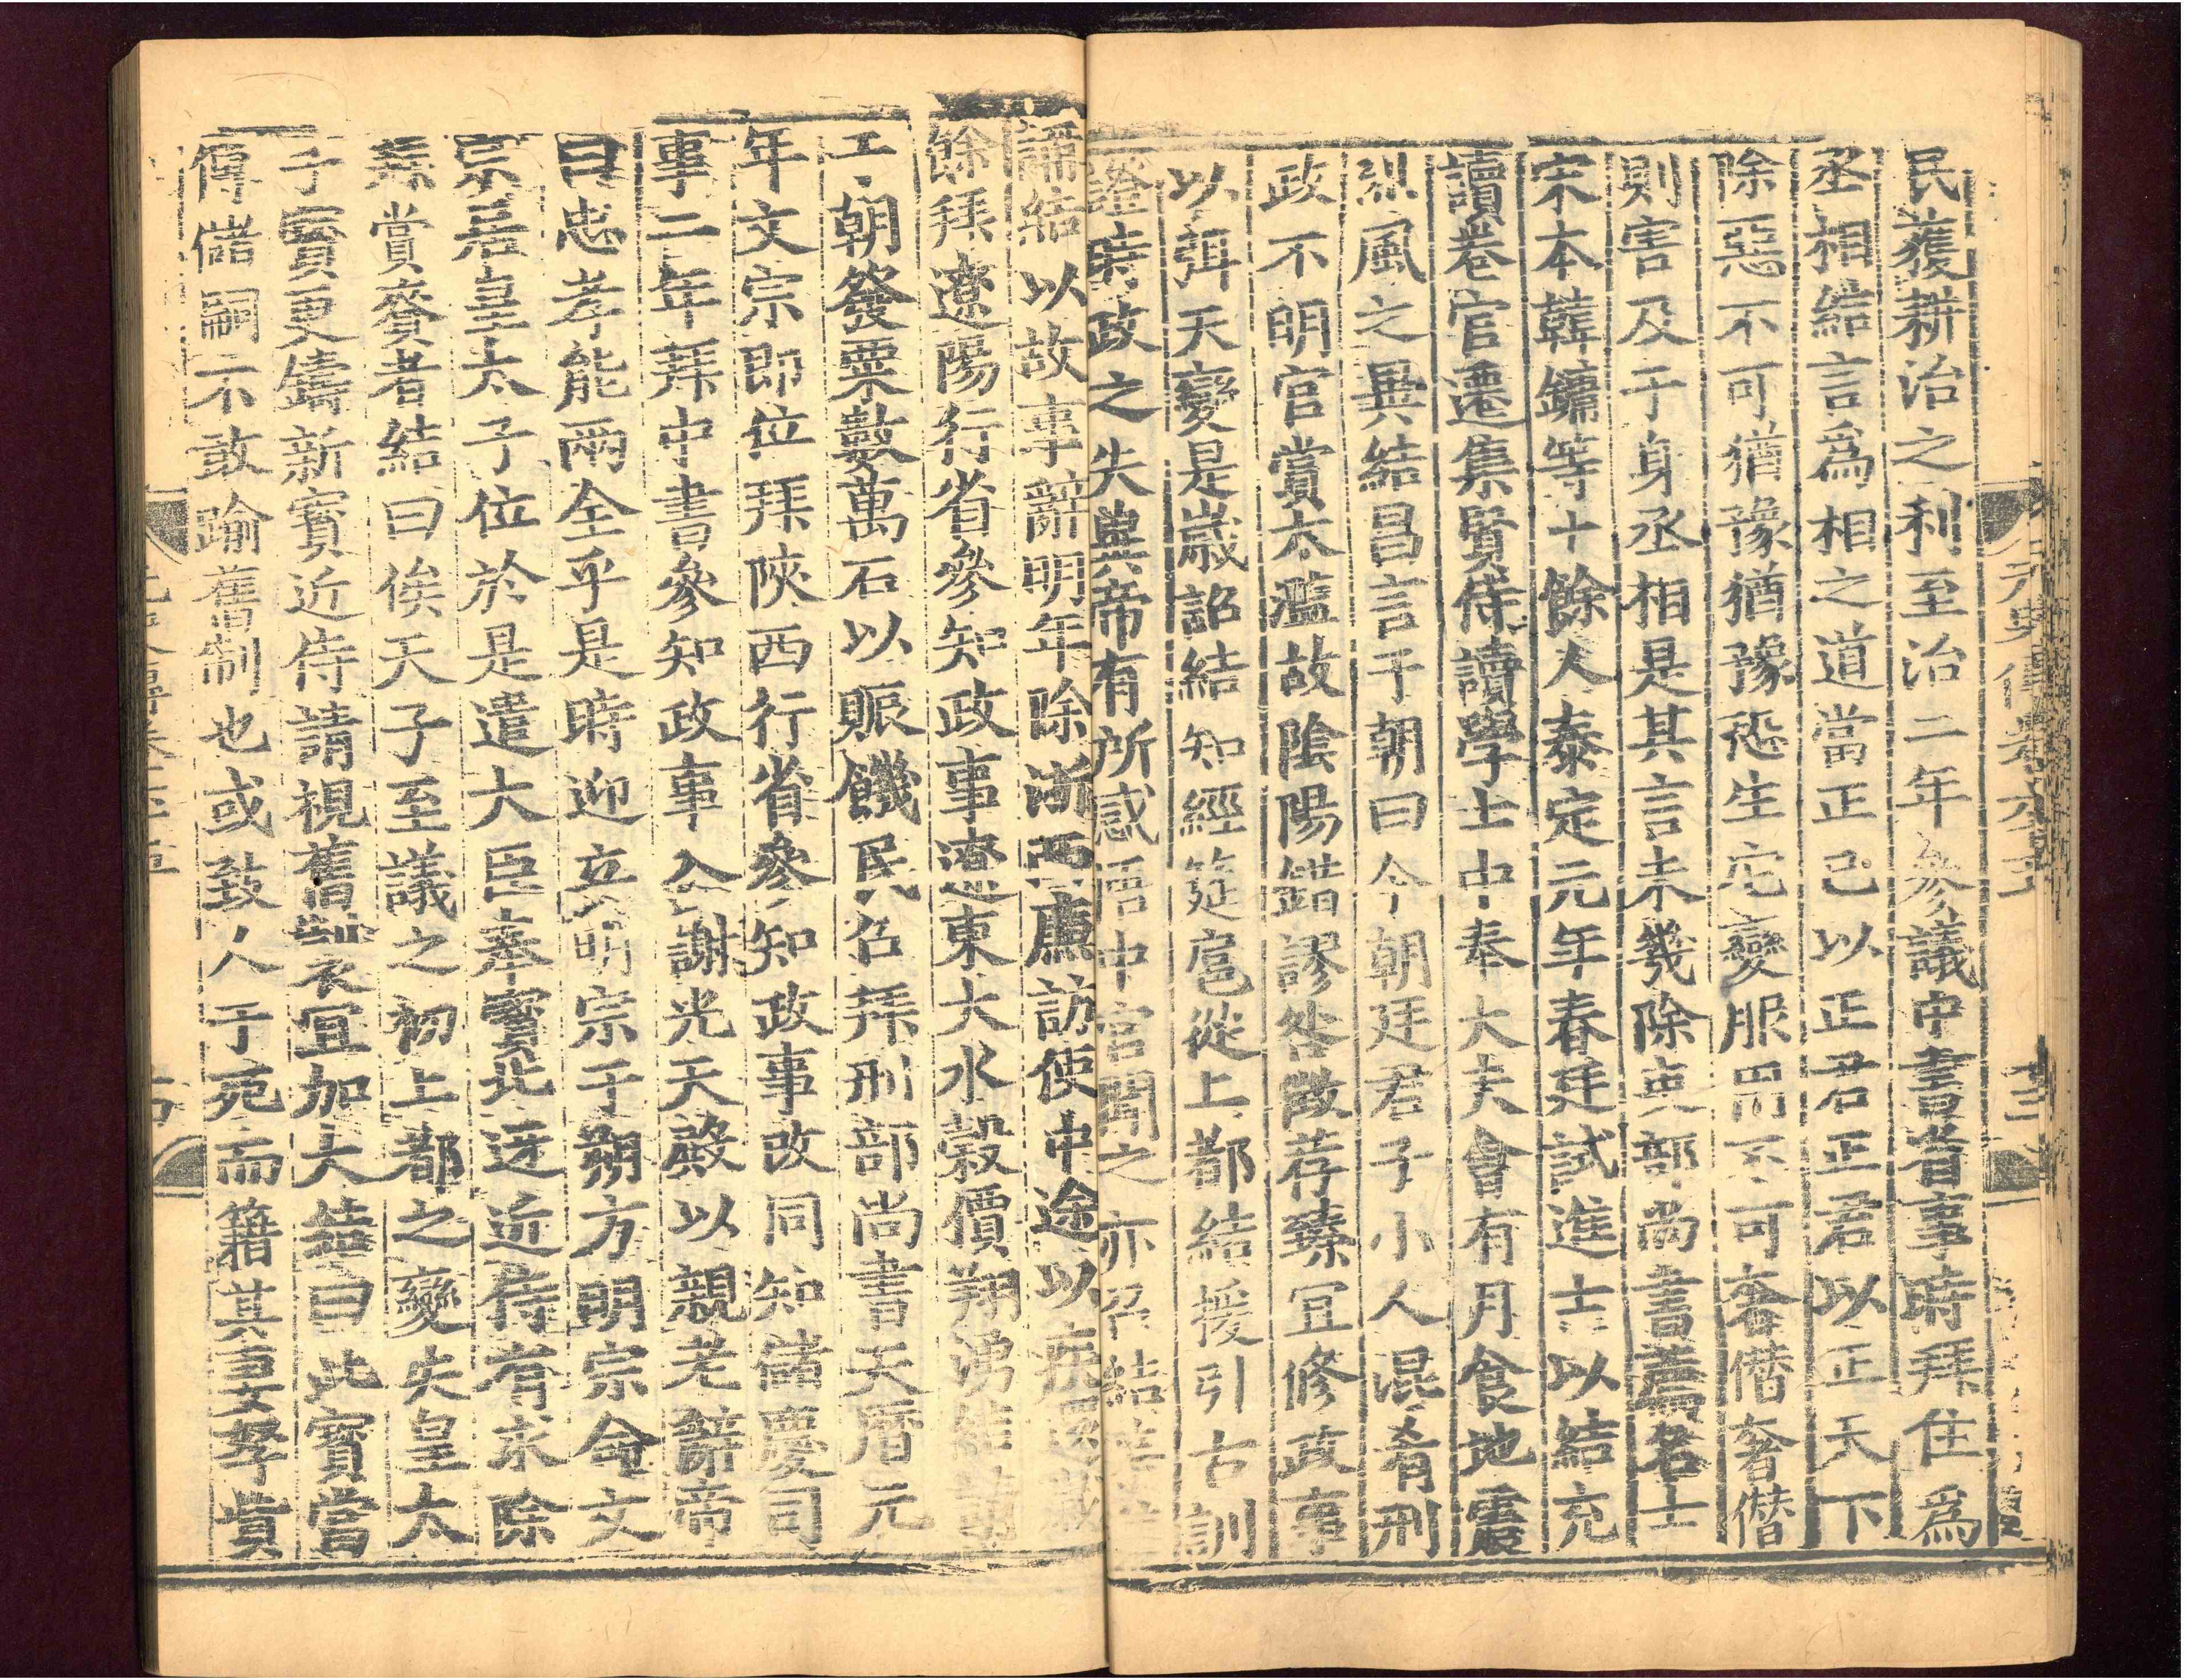 民獲耕治之利至治二年參議中書省事時拜住爲
丞相結言爲相之道當正己以正君正君以正天下
除惡不可猶豫猶豫恐生它變服用不可奢僭奢僭
則害及于身丞相是其言未幾除吏部尚書薦名士
宋本韓鏞等十餘人泰定元年春廷試進士以結充
讀卷官遷集賢侍讀學士中奉大夫會有月食地震
烈風之異結昌言于朝曰今朝廷君子小人混肴刑
政不明官賞太濫故陰陽錯謬咎徵荐臻宜修政事
以弭天變是歲詔結知經筵扈從上都結援引古訓
證時政之失兾帝有所感悟中宮聞之亦召結等
誦結以故事辭明年除浙西廉訪使中途以疾還歲
餘拜遼陽行省參知政事遼東大水穀價翔湧結請
工朝發粟數萬石以賑饑民召拜刑部尚書天曆元
年文宗即位拜陜西行省參知政事改同知儲慶司
事二年拜中書參知政事入謝光天殿以親老辭帝
曰忠孝能兩全乎是時迎立明宗于朔方明宗命文
宗居皇太子位於是遣大臣奉寶北迓近侍有求除
拜賞賚者結曰俟天子至議之初上都之變失皇太
子寶更鑄新寶近侍請視舊制宜加大結曰此寶當
傳儲嗣不敢踰舊制也或致人于死而籍其妻孥貲
元史傳卷六十五
十三